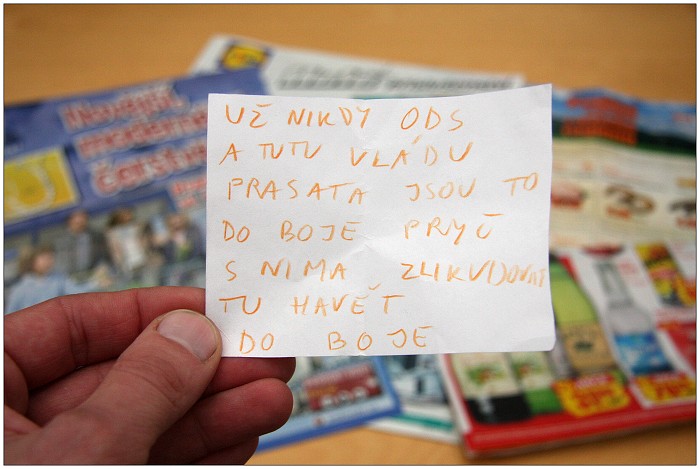 UŽ NIKDY ODS
A TUTU VLÁDU
PRASATA JSOU TO
DO BOJE PRYČ
S NIMA ZLIKVIDOVAT
TU HAVĚŤ
DO BOJE